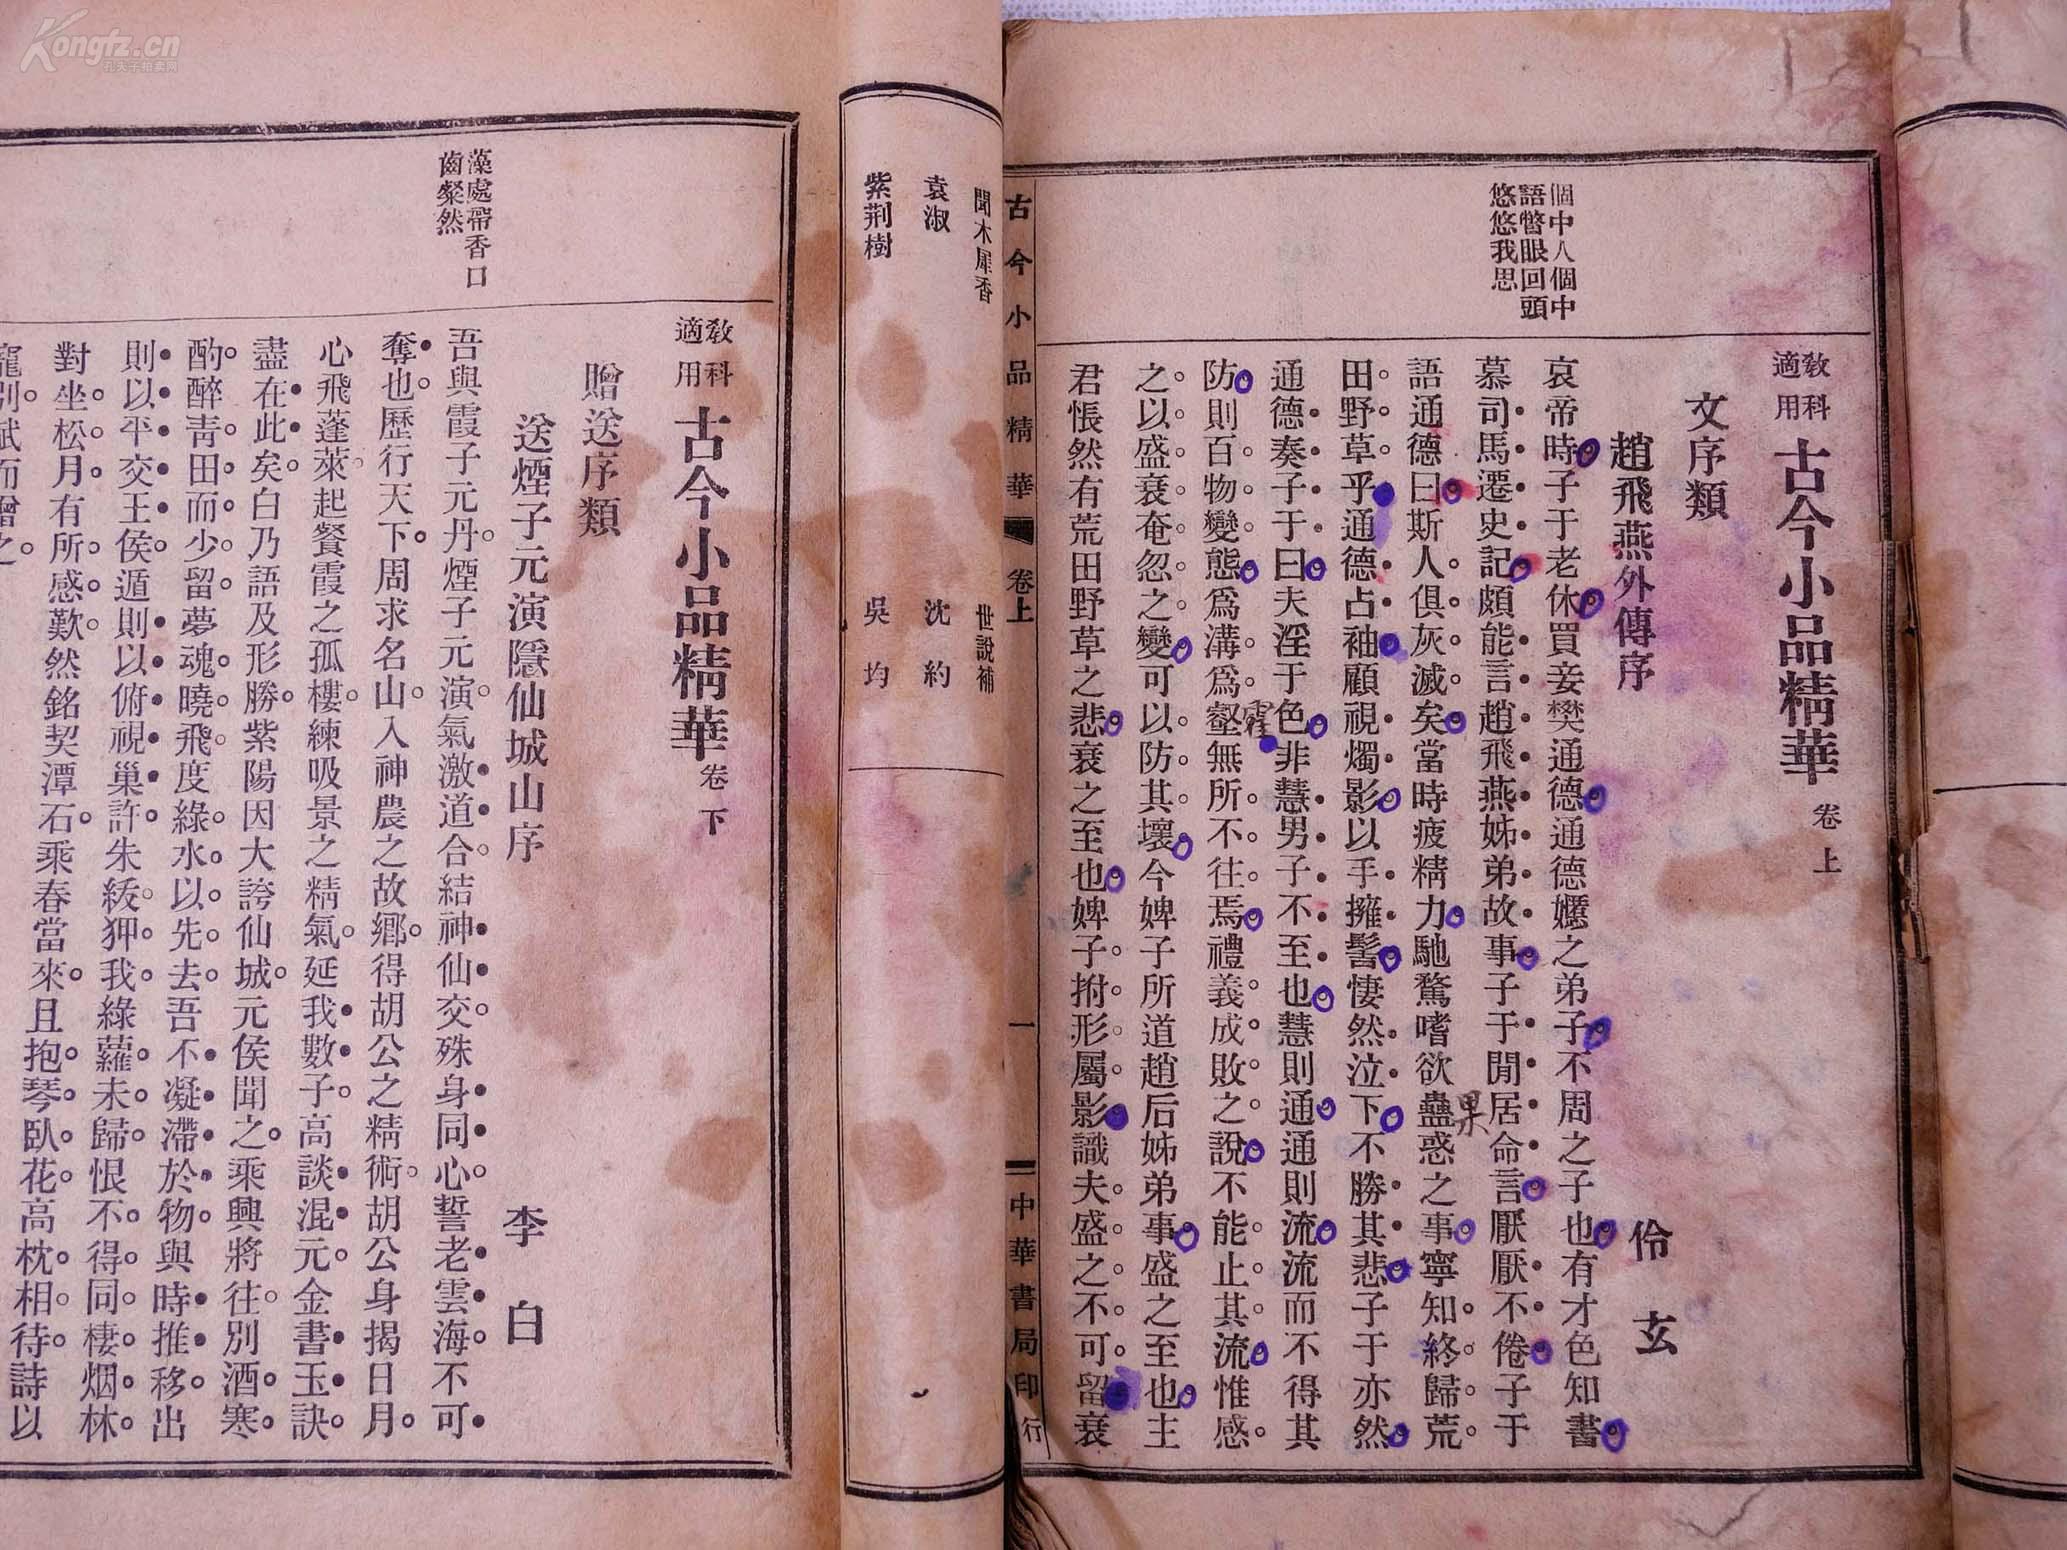 Kongfz.cn
孔夫子拍卖网
個中人個中
語瞥眼回頭
悠悠我思
教科
適用
古今小品精華
卷上
文序類
趙飛燕外傳序
伶玄
哀帝時子于老休買妾樊通德通德嫕之弟子不周之子也有才色知書
慕司馬遷史記頗能言趙飛燕姊弟故事子于閒居命言厭厭不倦子于
語通德曰斯人俱灰滅矣當時疲精力馳騖嗜欲蠱惑之事寧知終歸荒
田野草乎通德占袖顧視燭影以手擁髻悽然泣下不勝其悲子于亦然
通德奏子于曰夫淫于色非慧男子不至也慧則通通則流流而不得其
防則百物變態爲溝爲壑無所不往焉禮義成敗之說不能止其流惟感
之以盛衰奄忽之變可以防其壞今婢子所道趙后姊弟事盛之至也主
君悵然有荒田野草之悲衰之至也婢子拊形屬影識夫盛之不可留衰
霍
果
古今小品精華
卷上
一
中華書局印行
聞木犀香
世說補
袁淑
沈約
紫荆樹
吳均
藻處帶香口
齒粲然
教科
適用
古今小品精華
卷下
贈送序類
送煙子元演隱仙城山序
李白
吾與霞子元丹煙子元演氣激道合結神仙交殊身同心誓老雲海不可
奪也歷行天下周求名山入神農之故鄉得胡公之精術胡公身揭日月
心飛蓬萊起餐霞之孤樓練吸景之精氣延我數子高談混元金書玉訣
盡在此矣白乃語及形勝紫陽因大誇仙城元侯聞之乘興將往別酒寒
酌醉靑田而少留夢魂曉飛度綠水以先去吾不凝滯於物與時推移出
則以平交王侯遁則以俯視巢許朱紱狎我綠蘿未歸恨不得同棲烟林
對坐松月有所感歎然銘契潭石乘春當來且抱琴臥花高枕相待詩以
寵別賦而贈之